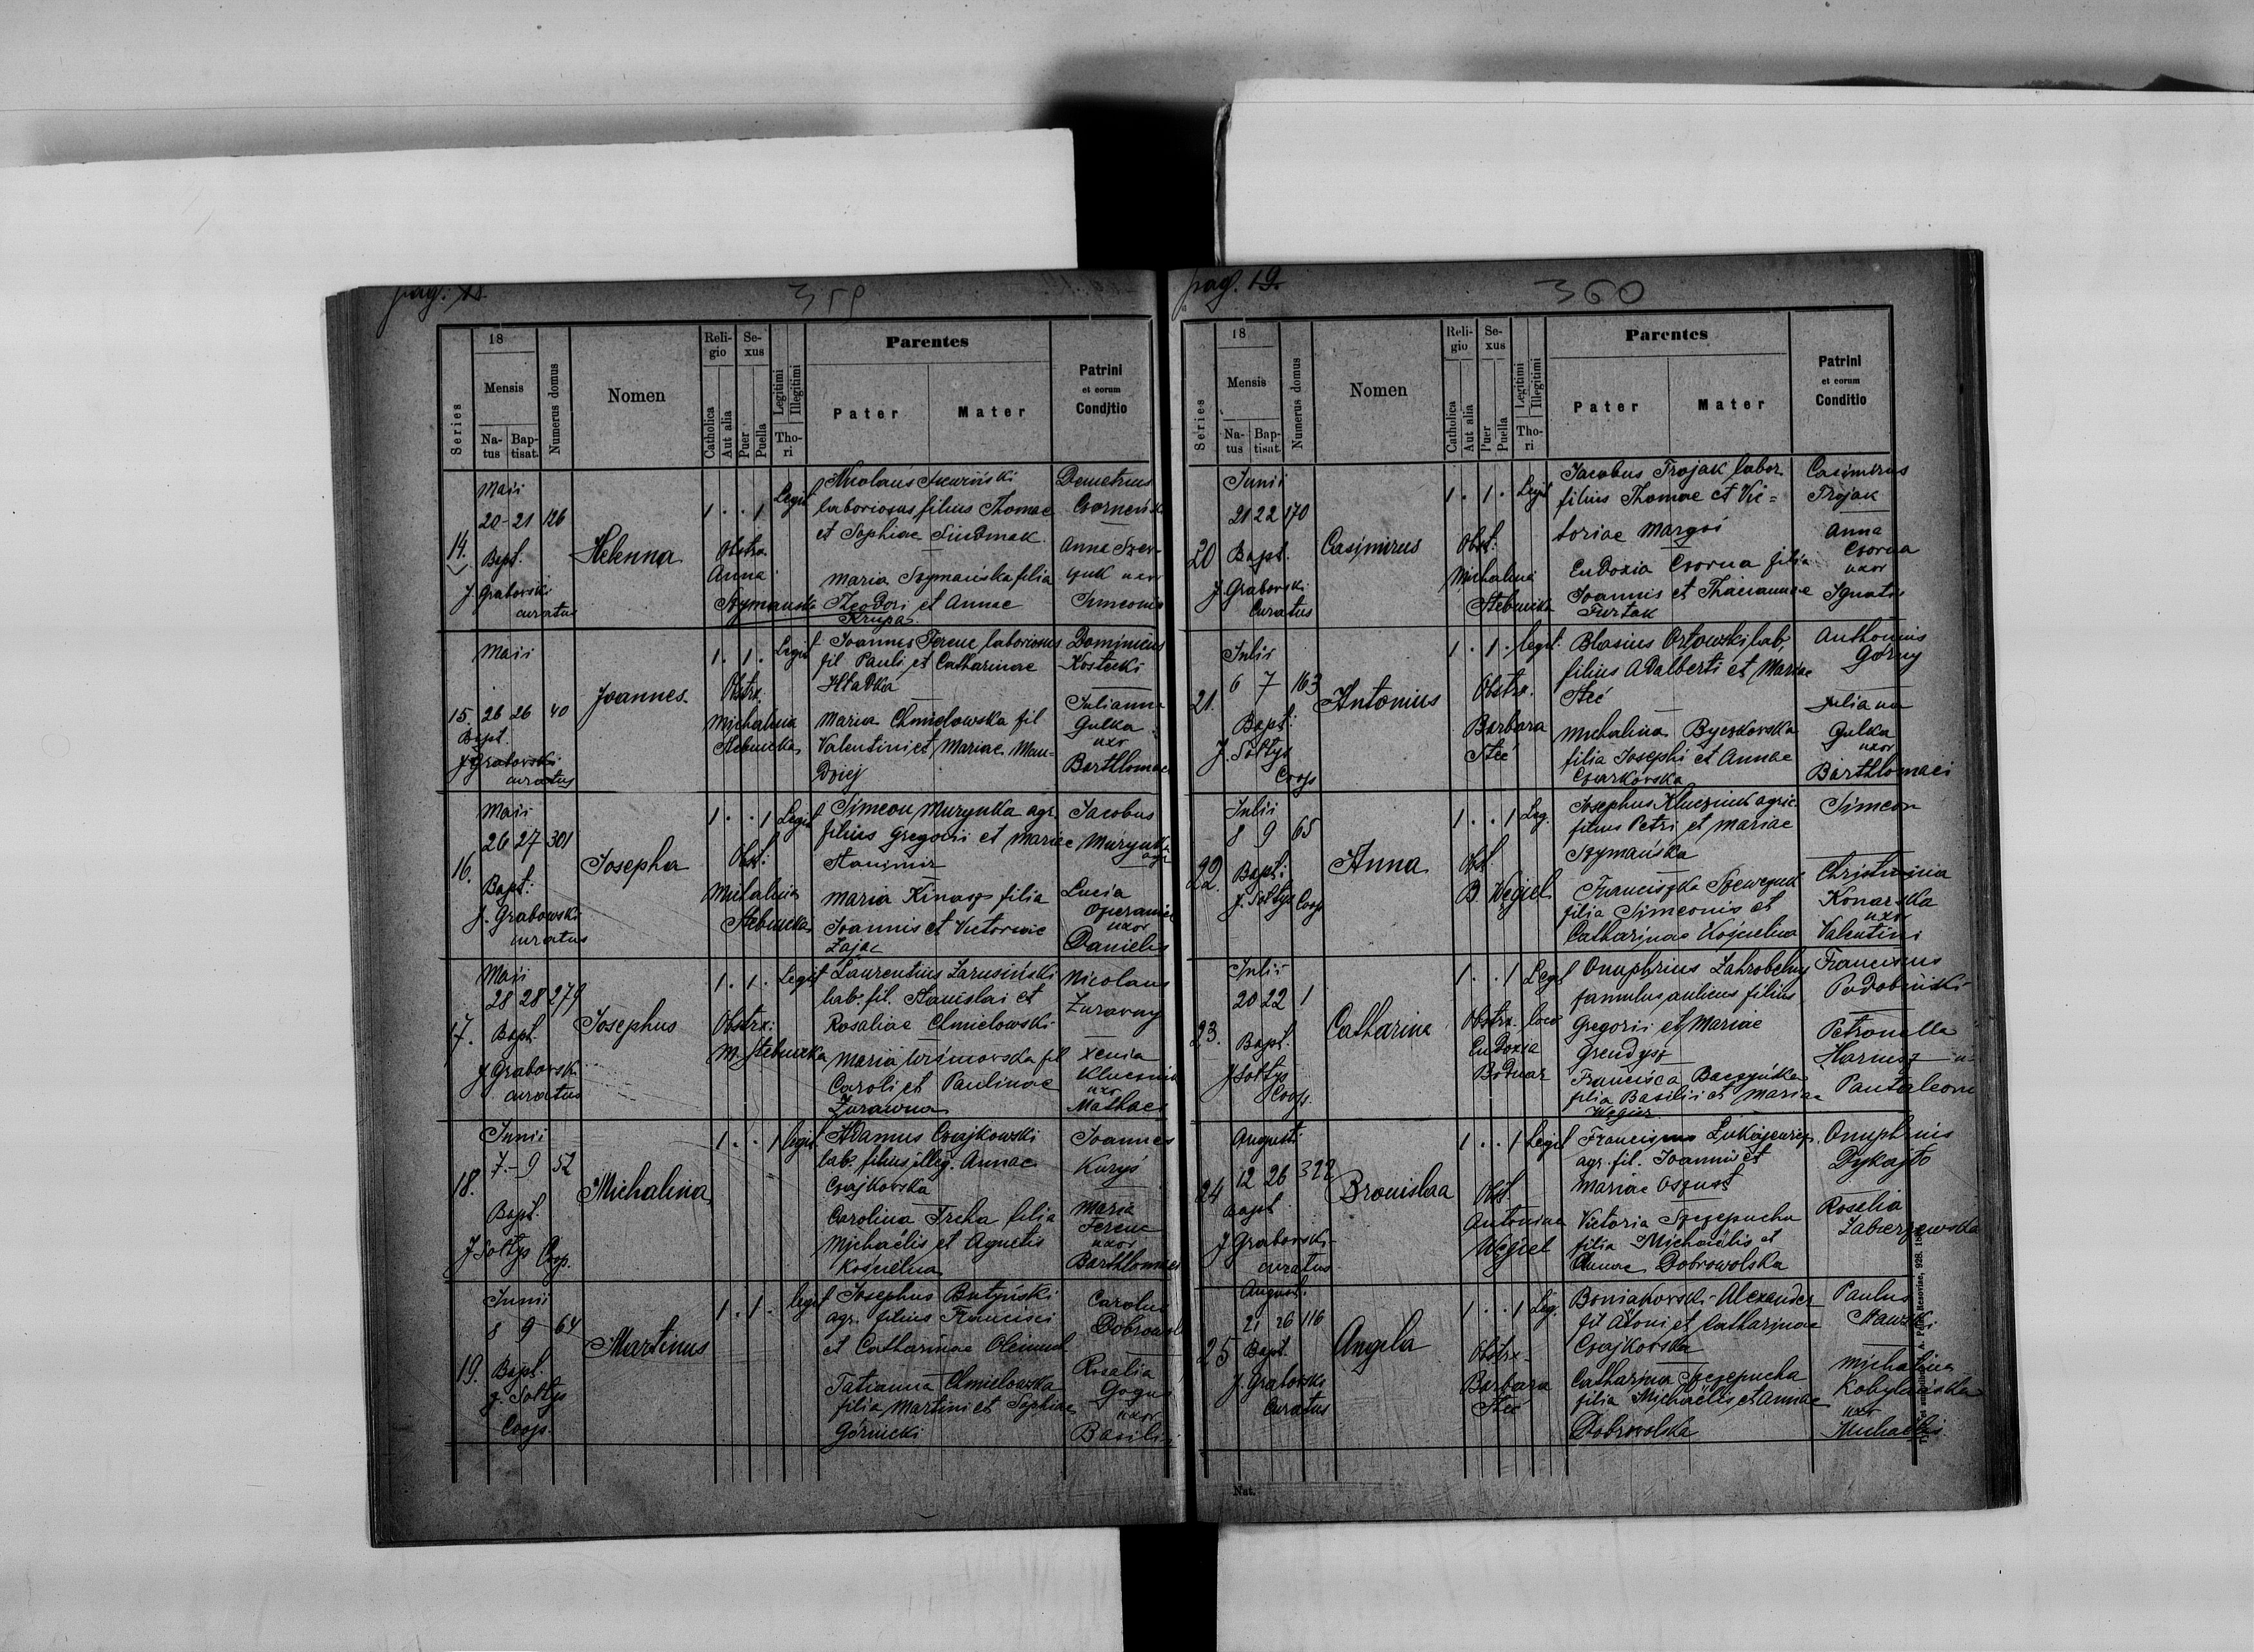 pag.
359
18
Series
Mensis
Na-
tus
Bap-
tisat.
Numerus domus
Nomen
Reli-
gio
Catholica
Aut alia
Se-
xus
Puer
Puella
Legitimi
Illegitimi
Tho-
ri
Parentes
Pater
Mater
Patrini
et eorum
Conditio
14.
Maii
20-21 126
Bapt.
J Grabovski
curatus
Helenna
1 . . 1 Legit
Obstr.
Anna
Szymańska
Nicolaus
laboriosus filius Thomae
et Sophiae
Maria Szymańska filia
Theodori et Annae
Krupa
Demetrius
Anna
uxor
Simeonis
15.
Maii
26 26 40
Bapt.
J Grabovski
curatus
Joannes
1 . 1 . Legit
Obstr.
Michalina
Stebnicka
Joannes Ferenc laboriosus
fil Pauli et Catharinae
Hladka
Maria Chmielowska fil
Valentini et Mariae Man-
dziej
Dominicus
Kostecki
Julianna
Gulka
uxor
Barthlomaei
16.
Maii
26 27 301
Bapt:
J. Grabowski
curatus
Josepha
1 . . 1 Legit
Obst:
Michalina
Stebnicka
Simeon Murynka agr.
filius Gregorii et Mariae
Stanimir
Maria Kinasz filia
Joannis et Victoriae
Zając
Jacobus
Murynka
agr
Lucia
uxor
Danielis
17.
Maii
28 28 279
Bapt.
J Grabovski
curatus
Josephus
1 . 1 . Legit
Obstrx:
M. Stebnicka
Laurentius Zarusiński
lab. fil. Stanislai et
Rosaliae Chmielowski
Maria Wiśniovska fil
Caroli et Paulinae
Żurawna
Nicolaus
Żuravny
Xenia
uxor
Mathaei
18.
Junii
7.-9 52
Bapt.
J Sołtys Coop.
Michalina
1 . . 1 legit
Adamus Czajkowski
lab. filius illeg. Annae
Czajkovska
Carolina Treha filia
Michaëlis et Agnetis
Kośnielna
Joannes
Kuryś
Maria
Ferenc
uxor
Barthlomaei
19.
Junii
8 9 64
Bapt.
J. Sołtys
Coop.
Martinus
1 . 1 . legit
Josephus Butyński
agr. filius Francisci
et Catharinae
Tatianna Chmielowska
filia Martini et Sophiae
Górnicki
Carolus
Rosalia
uxor
Basilii
pag. 19.
360
18
Series
Mensis
Na-
tus
Bap-
tisat.
Numerus domus
Nomen
Reli-
gio
Catholica
Aut alia
Se-
xus
Puer
Puella
Legitimi
Illegitimi
Tho-
ri
Parentes
Pater
Mater
Patrini
et eorum
Conditio
20
Junii
21 22 170
Bapt.
J Grabovski
Curatus
Casimirus
1 . 1 . Legit
Obst:
Michalina
Stebnicka
Jacobus Trojak labor.
filius Thomae et Vic=
toriae Margoś
Eudoxia Czorna filia
Joannis et Thacianae
Furtak
Casimirus
Trojak
Anna
Czorna
uxor
Ignatii
21.
Julii
6 7 163
Bapt:
J. Sołtys
Coop
Antonius
1 . 1 . legit.
Obstr.
Barbara
Steć
Blasius Orłowski lab,
filius Adalberti et Mariae
Steć
Michalina Byczkovska
filia Josephi et Annae
Czarkovska
Anthonius
Górny
Julianna
Gulka
uxor
Barthlomaei
22.
Julii
8 9 65
Bapt:
J. Sołtys Coop
Anna
1 . . 1 Leg.
Obst
B. Węgiel
Josephus Kluczniuk agric.
filius Petri et Mariae
Szymańska
Franciszka Szewczuk
filia Simeonis et
Catharinae Kośnielna
Simeon
Christinia
Konarska
uxor
Valentini
23.
Julii
20 22 1
Bapt.
J Sołtys
Coop.
Catharina
1 . . 1 Legit
Obstrx. loco
Eudoxia
Bodnar
Onuphrius Zahrobelny
famulus aulicus filius
Gregorii et Mariae
Grendysz
Francisca Baczyńska
filia Basilii et Mariae
Węgier
Franciscus
Podobiński
Petronella
Harnisz
Pantaleoni
24
Augusti
12 26 322
Bapt
J Grabovski
curatus
Bronislaa
1 . . 1 Legit
Obst.
Antonina
Węgiel
Franciscus Lukasiewicz
agr. fil. Joannis et
Mariae Oszust
Victoria Szczepucha
filia Michaëlis et
Annae Dobrowolska
Onuphrius
Dykajło
Rosalia
Zabierzewska
25
August.
21 26 116
Bapt.
J. Grabovski
Curatus
Angela
1 . . 1 Leg.
Obstrx.
Barbara
Steć
Boniakovski Alexander
fil Atoni et Catharinae
Czajkovska
Catharina Szczepucha
filia Michaëlis et Annae
Dobrovolska
Paulus
Stawski
Michalina
Kobylańska
uxor
Michaëlis
Nat.